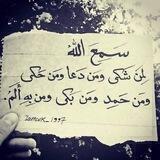 سمع الله
لمن شكى ومن دعا ومن حكى
ومن حمد ومن بكى ومن به ألم.